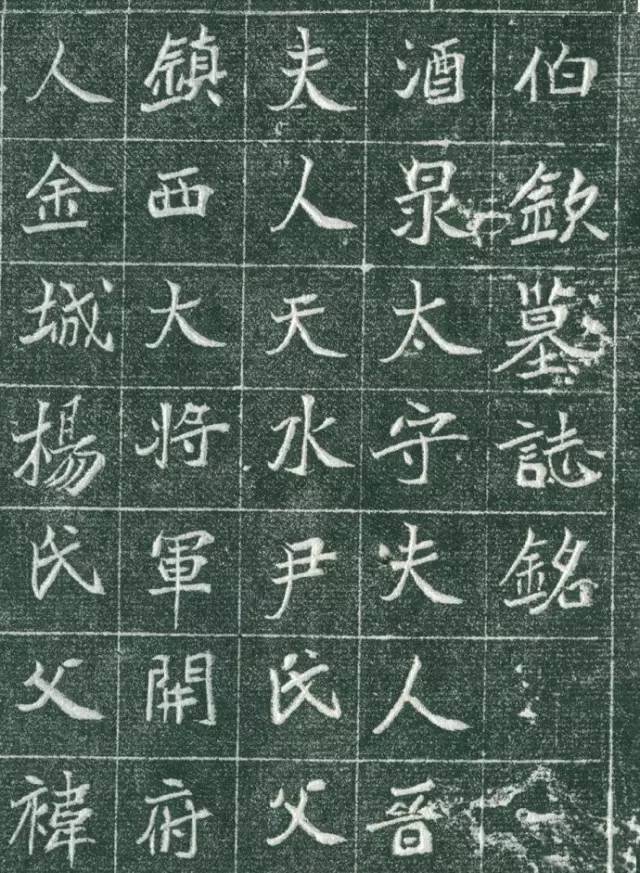 伯欽墓誌銘
酒泉太守夫人晉
夫人天水尹氏父
鎮西大将軍開府
人金城楊氏父褘